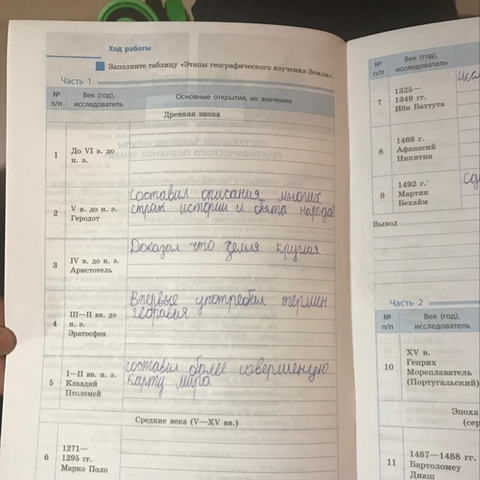 Ход работы
Заполните таблицу «Этапы географического изучения Земли».
Часть 1
№ п/п
Век (год), исследователь
Основные открытия, их значение
Древняя эпоха
1
До VI в. до
н. э.
2
V в. до н. э.
Геродот
Составил описания многих
стран истории и быта народов
3
IV в. до н. э.
Аристотель
Доказал что земля круглая
4
III—II вв. до
н. э.
Эратосфен
Впервые употребил термин
георавия
5
I—II вв. н. э.
Клавдий
Птолемей
составил более совершеную
карту мира
Средние века (V—XV вв.)
6
1271—
1295 гг.
Марко Поло
№ п/п
Век (год),
исследователь
7
1325—
1349 гг.
Ибн Баттута
8
1468 г.
Афанасий
Никитин
9
1492 г.
Мартин
Бехайм
Вывод
Часть 2
№ п/п
Век (год),
исследователь
10
XV в.
Генрих
Мореплаватель
(Португальский)
Эпоха
(сер
11
1487—1488 гг.
Бартоломеу
Диаш